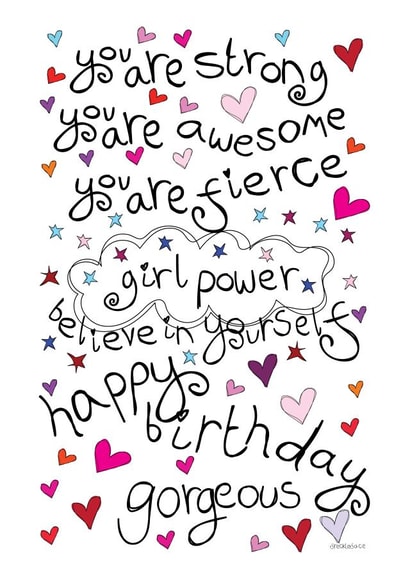 you are strong
you are awesome
you are fierce
girl power
believe in yourself
happy
birthday
gorgeous